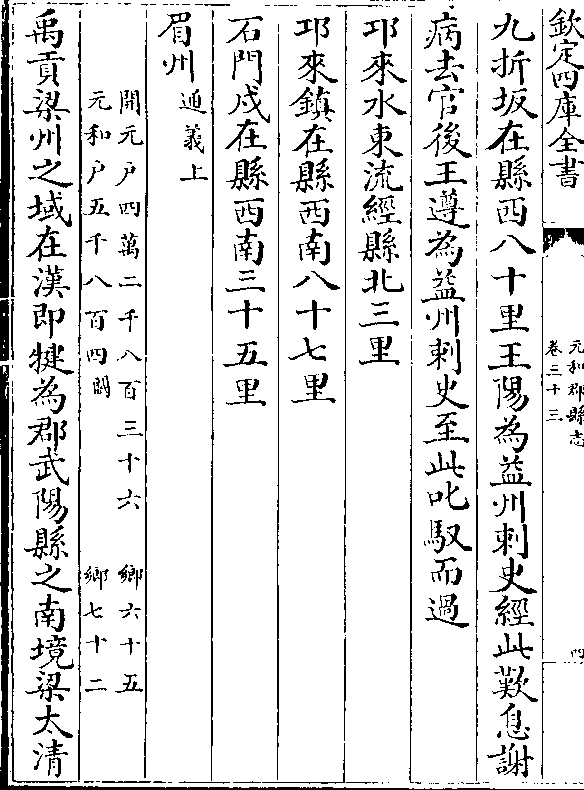 欽定四庫全書
元和郡縣志
卷三十三
四
九折坂在縣西八十里王陽為益州刺史經此歎息謝
病去官後王遵為益州刺史至此叱馭而過
邛來水東流經縣北三里
邛來鎮在縣西南八十七里
石門戍在縣西南三十五里
眉州
通義上
開元戶四萬二千八百三十六 鄉六十五
元和戶五千八百四闕 鄉七十二
禹貢梁州之域在漢即犍為郡武陽縣之南境梁太清